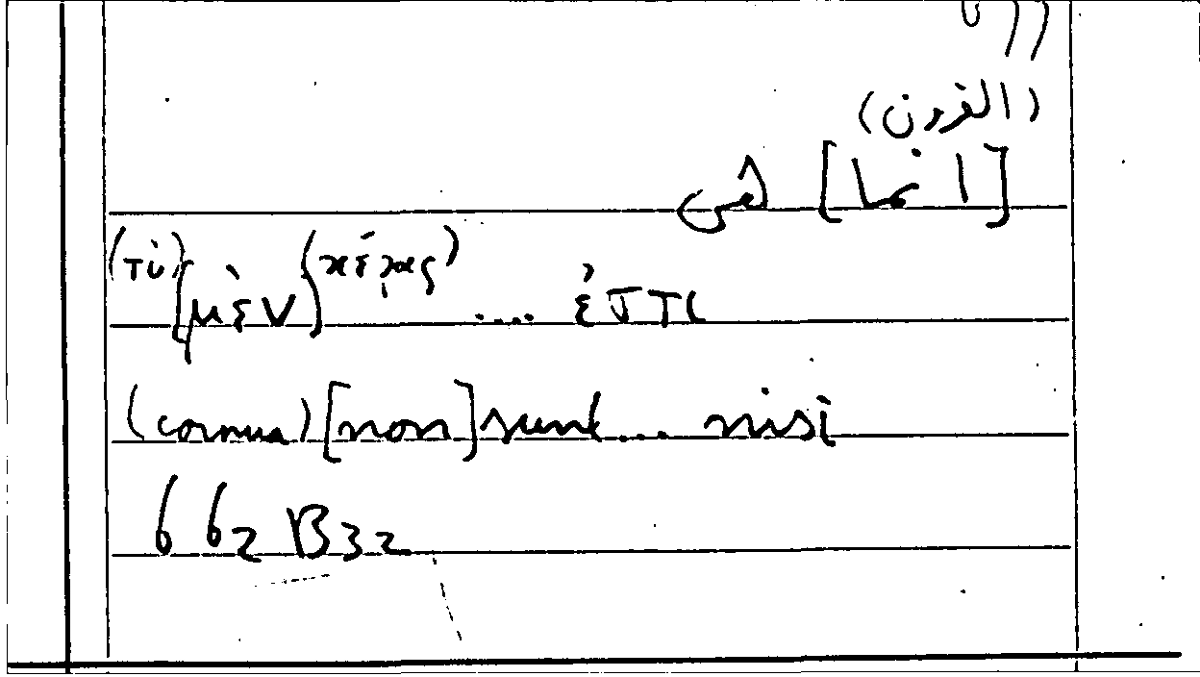 (القرون)
[انما] هى
(τὸ) [μὲν] (κέρας) .... ἐστι
(cornua) [non] sunt ... nisi
662 B32